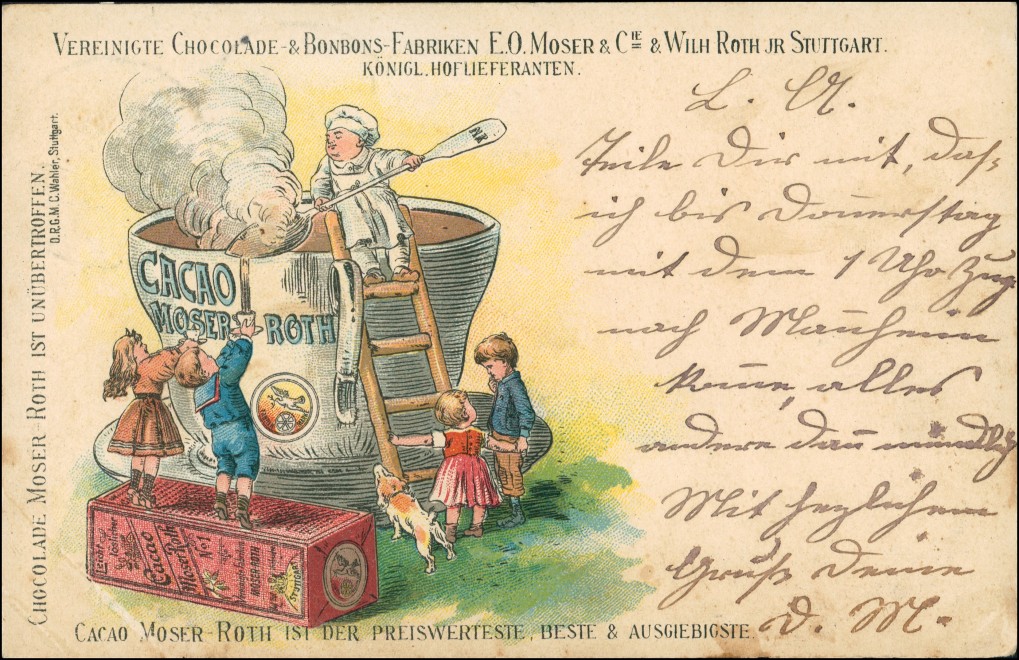 VEREINIGTE CHOCOLADE-& BONBONS-FABRIKEN E.O. MOSER & CIE & WILH ROTH JR STUTTGART.
KÖNIGL. HOFLIEFERANTEN.
CHOCOLADE MOSER-ROTH IST UNÜBERTROFFEN.
D.R.G.M. C. Wahler, Stuttgart.
MR
CACAO
MOSER ROTH
Cacao
Moser-Roth
No 1
MOSER-ROTH
STUTTGART
CACAO MOSER-ROTH IST DER PREISWERTESTE, BESTE & AUSGIEBIGSTE.
L. A.
Teile Dir mit, daß
ich bis Donnerstag
mit dem 1 Uhr Zug
nach Mannheim
komme, alles
andere dann mündl.
Mit herzlichem
Gruß Deine
d. M.